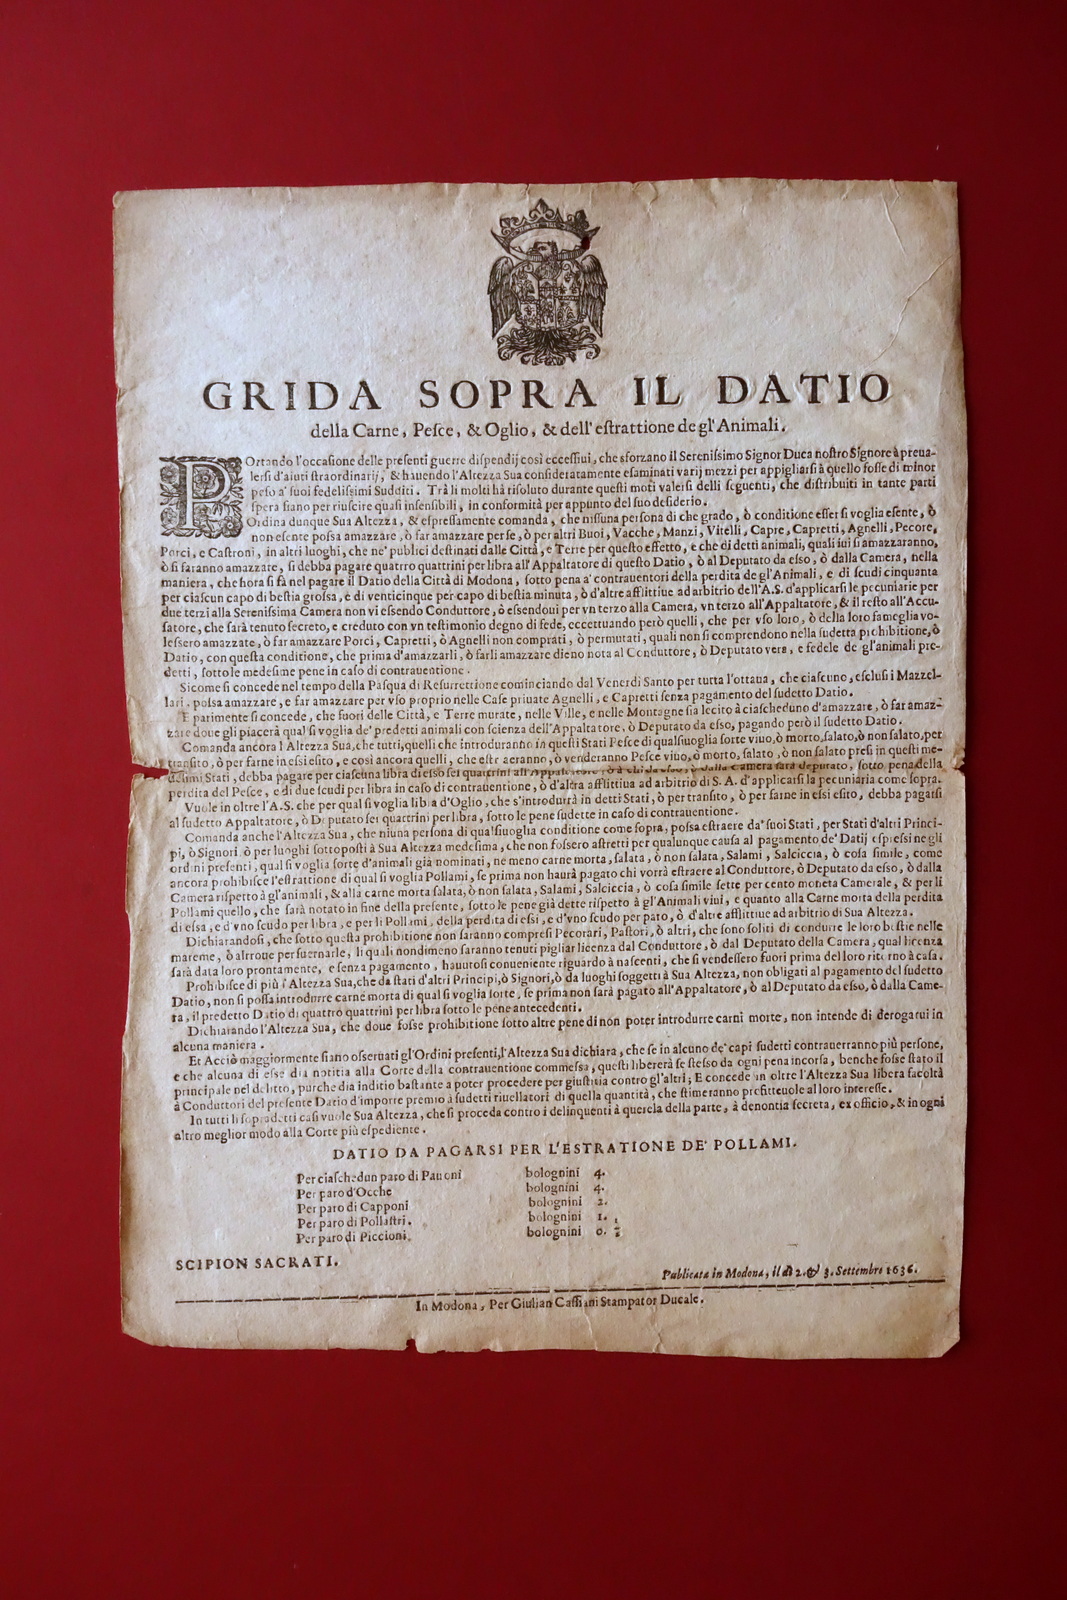 GRIDA SOPRA IL DATIO
della Carne, Peſce, & Oglio, & dell'eſtrattione de gl'Animali.
POrtando l'occaſione delle preſenti guerre diſpendij così ecceſſiui, che sforzano il Sereniſſimo Signor Duca noſtro Signore à preua-
lerſi d'aiuti ſtraordinarij, & hauendo l'Altezza Sua conſideratamente eſaminati varij mezzi per appigliarſi à quello foſſe di minor
peſo a' ſuoi fedeliſſimi Sudditi. Trà li molti hà riſoluto durante queſti moti valerſi delli ſeguenti, che diſtribuiti in tante parti
ſpera ſiano per riuſcire quaſi inſenſibili, in conformità per appunto del ſuo deſiderio.
Ordina dunque Sua Altezza, & eſpreſſamente comanda, che niſſuna perſona di che grado, ò conditione eſſer ſi voglia eſente, ò
non eſente poſſa amazzare, ò far amazzare per ſe, ò per altri Buoi, Vacche, Manzi, Vitelli, Capre, Capretti, Agnelli, Pecore,
Porci, e Caſtroni, in altri luoghi, che ne' publici deſtinati dalle Città, e Terre per queſto effetto, e che di detti animali, quali iui ſi amazzaranno,
ò ſi faranno amazzare, ſi debba pagare quattro quattrini per libra all'Appaltatore di queſto Datio, ò al Deputato da eſſo, ò dalla Camera, nella
maniera, che hora ſi fà nel pagare il Datio della Città di Modona, ſotto pena a' contrauentori della perdita de gl'Animali, e di ſcudi cinquanta
per ciaſcun capo di beſtia groſſa, e di venticinque per capo di beſtia minuta, ò d'altre afflittiue ad arbitrio dell'A.S. d'applicarſi le pecuniarie per
due terzi alla Sereniſſima Camera non vi eſſendo Conduttore, ò eſſendoui per vn terzo alla Camera, vn terzo all'Appaltatore, & il reſto all'Accu-
ſatore, che ſarà tenuto ſecreto, e creduto con vn teſtimonio degno di fede, eccettuando però quelli, che per vſo loro, ò della loro fameglia vo-
leſſero amazzare, ò far amazzare Porci, Capretti, ò Agnelli non comprati, ò permutati, quali non ſi comprendono nella ſudetta prohibitione, ò
Datio, con queſta conditione, che prima d'amazzarli, ò farli amazzare dieno nota al Conduttore, ò Deputato vera, e fedele de gl'animali pre-
detti, ſotto le medeſime pene in caſo di contrauentione.
Sicome ſi concede nel tempo della Paſqua di Reſurrettione cominciando dal Venerdi Santo per tutta l'ottaua, che ciaſcuno, eſcluſi i Mazzel-
lari, poſſa amazzare, e far amazzare per vſo proprio nelle Caſe priuate Agnelli, e Capretti ſenza pagamento del ſudetto Datio.
E parimente ſi concede, che fuori delle Città, e Terre murate, nelle Ville, e nelle Montagne ſia lecito à ciaſcheduno d'amazzare, ò far amaz-
zare doue gli piacerà qual ſi voglia de' predetti animali con ſcienza dell'Appaltatore, ò Deputato da eſſo, pagando però il ſudetto Datio.
Comanda ancora l'Altezza Sua, che tutti, quelli che introduranno in queſti Stati Peſce di qualſiuoglia ſorte viuo, ò morto, ſalato, ò non ſalato, per
tranſito, ò per farne in eſſi eſito, e così ancora quelli, che eſtraeranno, ò venderanno Peſce viuo, ò morto, ſalato, ò non ſalato preſi in queſti me-
deſimi Stati, debba pagare per ciaſcuna libra di eſſo ſei quattrini all'Appaltatore, ò à chi da eſſo, ò dalla Camera ſarà deputato, ſotto pena della
perdita del Peſce, e di due ſcudi per libra in caſo di contrauentione, ò d'altra afflittiua ad arbitrio di S. A. d'applicarſi la pecuniaria come ſopra.
Vuole in oltre l'A.S. che per qual ſi voglia libra d'Oglio, che s'introdurrà in detti Stati, ò per tranſito, ò per farne in eſſi eſito, debba pagarſi
al ſudetto Appaltatore, ò Deputato ſei quattrini per libra, ſotto le pene ſudette in caſo di contrauentione.
Comanda anche l'Altezza Sua, che niuna perſona di qualſiuoglia conditione come ſopra, poſſa eſtraere da' ſuoi Stati, per Stati d'altri Princi-
pi, ò Signori, ò per luoghi ſottopoſti à Sua Altezza medeſima, che non foſſero aſtretti per qualunque cauſa al pagamento de' Datij eſpreſſi ne gli
ordini preſenti, qual ſi voglia ſorte d'animali già nominati, ne meno carne morta, ſalata, ò non ſalata, Salami, Salciccia, ò coſa ſimile, come
ancora prohibiſce l'eſtrattione di qual ſi voglia Pollami, ſe prima non haurà pagato chi vorrà eſtraere al Conduttore, ò Deputato da eſſo, ò dalla
Camera riſpetto à gl'animali, & alla carne morta ſalata, ò non ſalata, Salami, Salciccia, ò coſa ſimile ſette per cento moneta Camerale, & per li
Pollami quello, che ſarà notato in fine della preſente, ſotto le pene già dette riſpetto à gl'Animali viui, e quanto alla Carne morta della perdita
di eſſa, e d'vno ſcudo per libra, e per li Pollami, della perdita di eſſi, e d'vno ſcudo per paro, ò d'altre afflittiue ad arbitrio di Sua Altezza.
Dichiarandoſi, che ſotto queſta prohibitione non ſaranno compreſi Pecorari, Paſtori, ò altri, che ſono ſoliti di condurre le loro beſtie nelle
mareme, ò altroue per ſuernarle, li quali nondimeno ſaranno tenuti pigliar licenza dal Conduttore, ò dal Deputato della Camera, qual licenza
ſarà data loro prontamente, e ſenza pagamento, hauutoſi conueniente riguardo à naſcenti, che ſi vendeſſero fuori prima del loro ritorno à caſa.
Prohibiſce di più l'Altezza Sua, che da ſtati d'altri Principi, ò Signori, ò da luoghi ſoggetti à Sua Altezza, non obligati al pagamento del ſudetto
Datio, non ſi poſſa introdurre carne morta di qual ſi voglia ſorte, ſe prima non ſarà pagato all'Appaltatore, ò al Deputato da eſſo, ò dalla Came-
ra, il predetto Datio di quattro quattrini per libra ſotto le pene antecedenti.
Dichiarando l'Altezza Sua, che doue foſſe prohibitione ſotto altre pene di non poter introdurre carni morte, non intende di derogarui in
alcuna maniera.
Et Acciò maggiormente ſiano oſſeruati gl'Ordini preſenti, l'Altezza Sua dichiara, che ſe in alcuno de' capi ſudetti contrauerranno più perſone,
e che alcuna di eſſe dia notitia alla Corte della contrauentione commeſſa, queſti libererà ſe ſteſſo da ogni pena incorſa, benche foſſe ſtato il
principale nel delitto, purche dia inditio baſtante a poter procedere per giuſtitia contro gl'altri; E concede in oltre l'Altezza Sua libera facoltà
à Conduttori del preſente Datio d'imporre premio à ſudetti riuellatori di quella quantità, che ſtimeranno profitteuole al loro intereſſe.
In tutti li ſopradetti caſi vuole Sua Altezza, che ſi proceda contro i delinquenti à querela della parte, à denontia ſecreta, ex officio, & in ogni
altro meglior modo alla Corte più eſpediente.
DATIO DA PAGARSI PER L'ESTRATIONE DE' POLLAMI.
Per ciaſchedun paro di Pauoni bolognini 4.
Per paro d'Ocche bolognini 4.
Per paro di Capponi bolognini 2.
Per paro di Pollaſtri. bolognini 1.
Per paro di Piccioni. bolognini 0.
SCIPION SACRATI.
Publicata in Modona, il dì 2. & 3. Settembre 1636.
In Modona, Per Giulian Caſſiani Stampator Ducale.